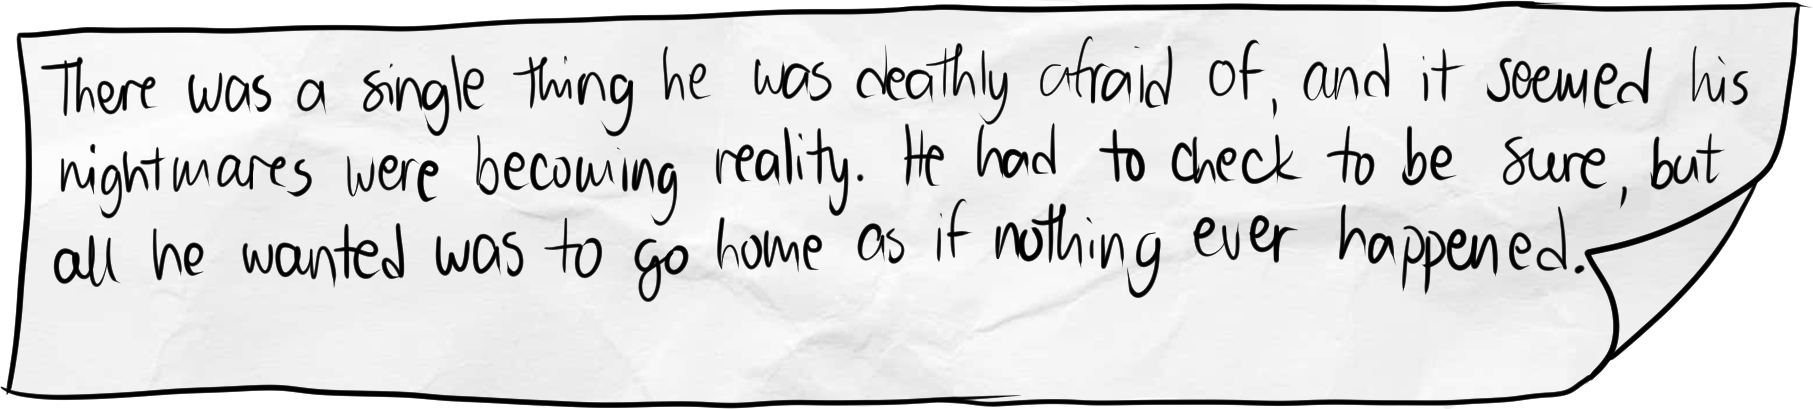 There was a single thing he was deathly afraid of, and it seemed his
nightmares were becoming reality. He had to check to be sure, but
all he wanted was to go home as if nothing ever happened.